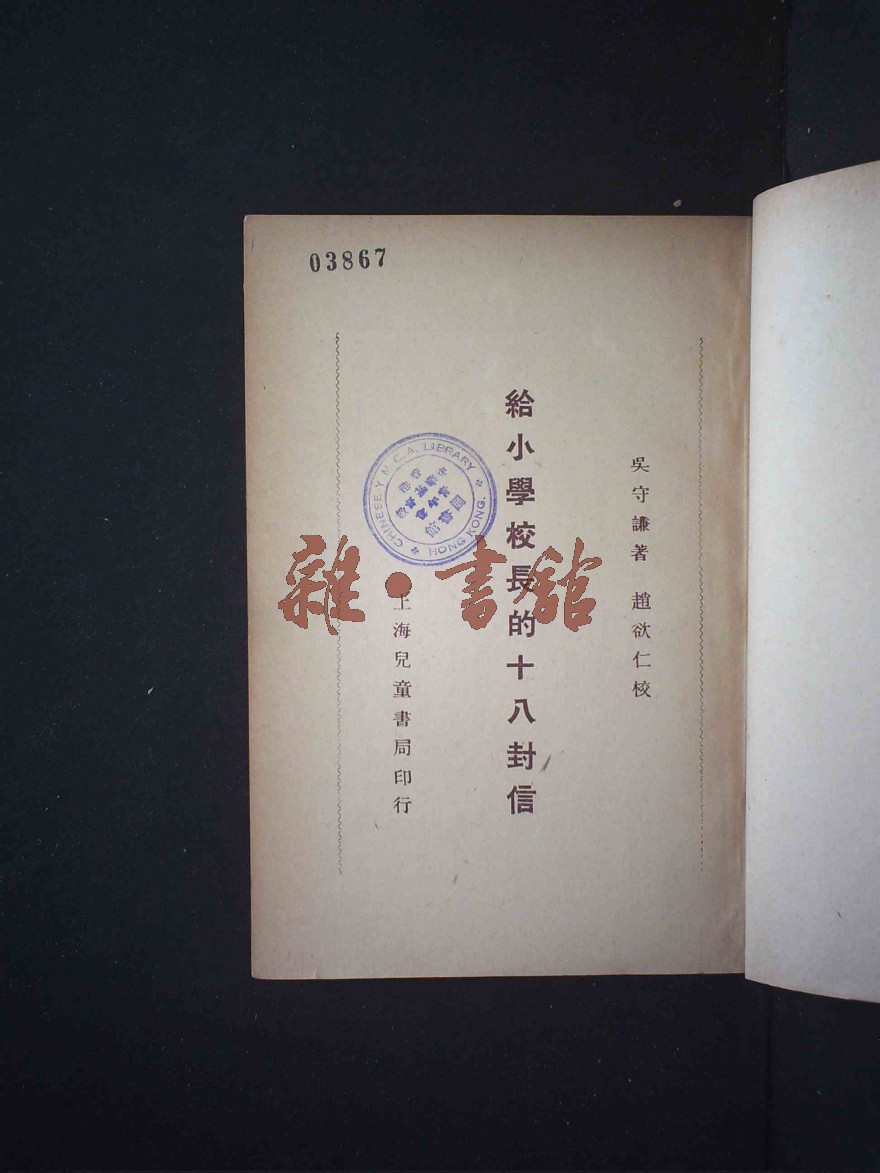 03867
吳守謙著 趙欲仁校
給小學校長的十八封信
上海兒童書局印行
CHINESE Y. M. C. A. LIBRARY
HONG KONG.
雜·書館